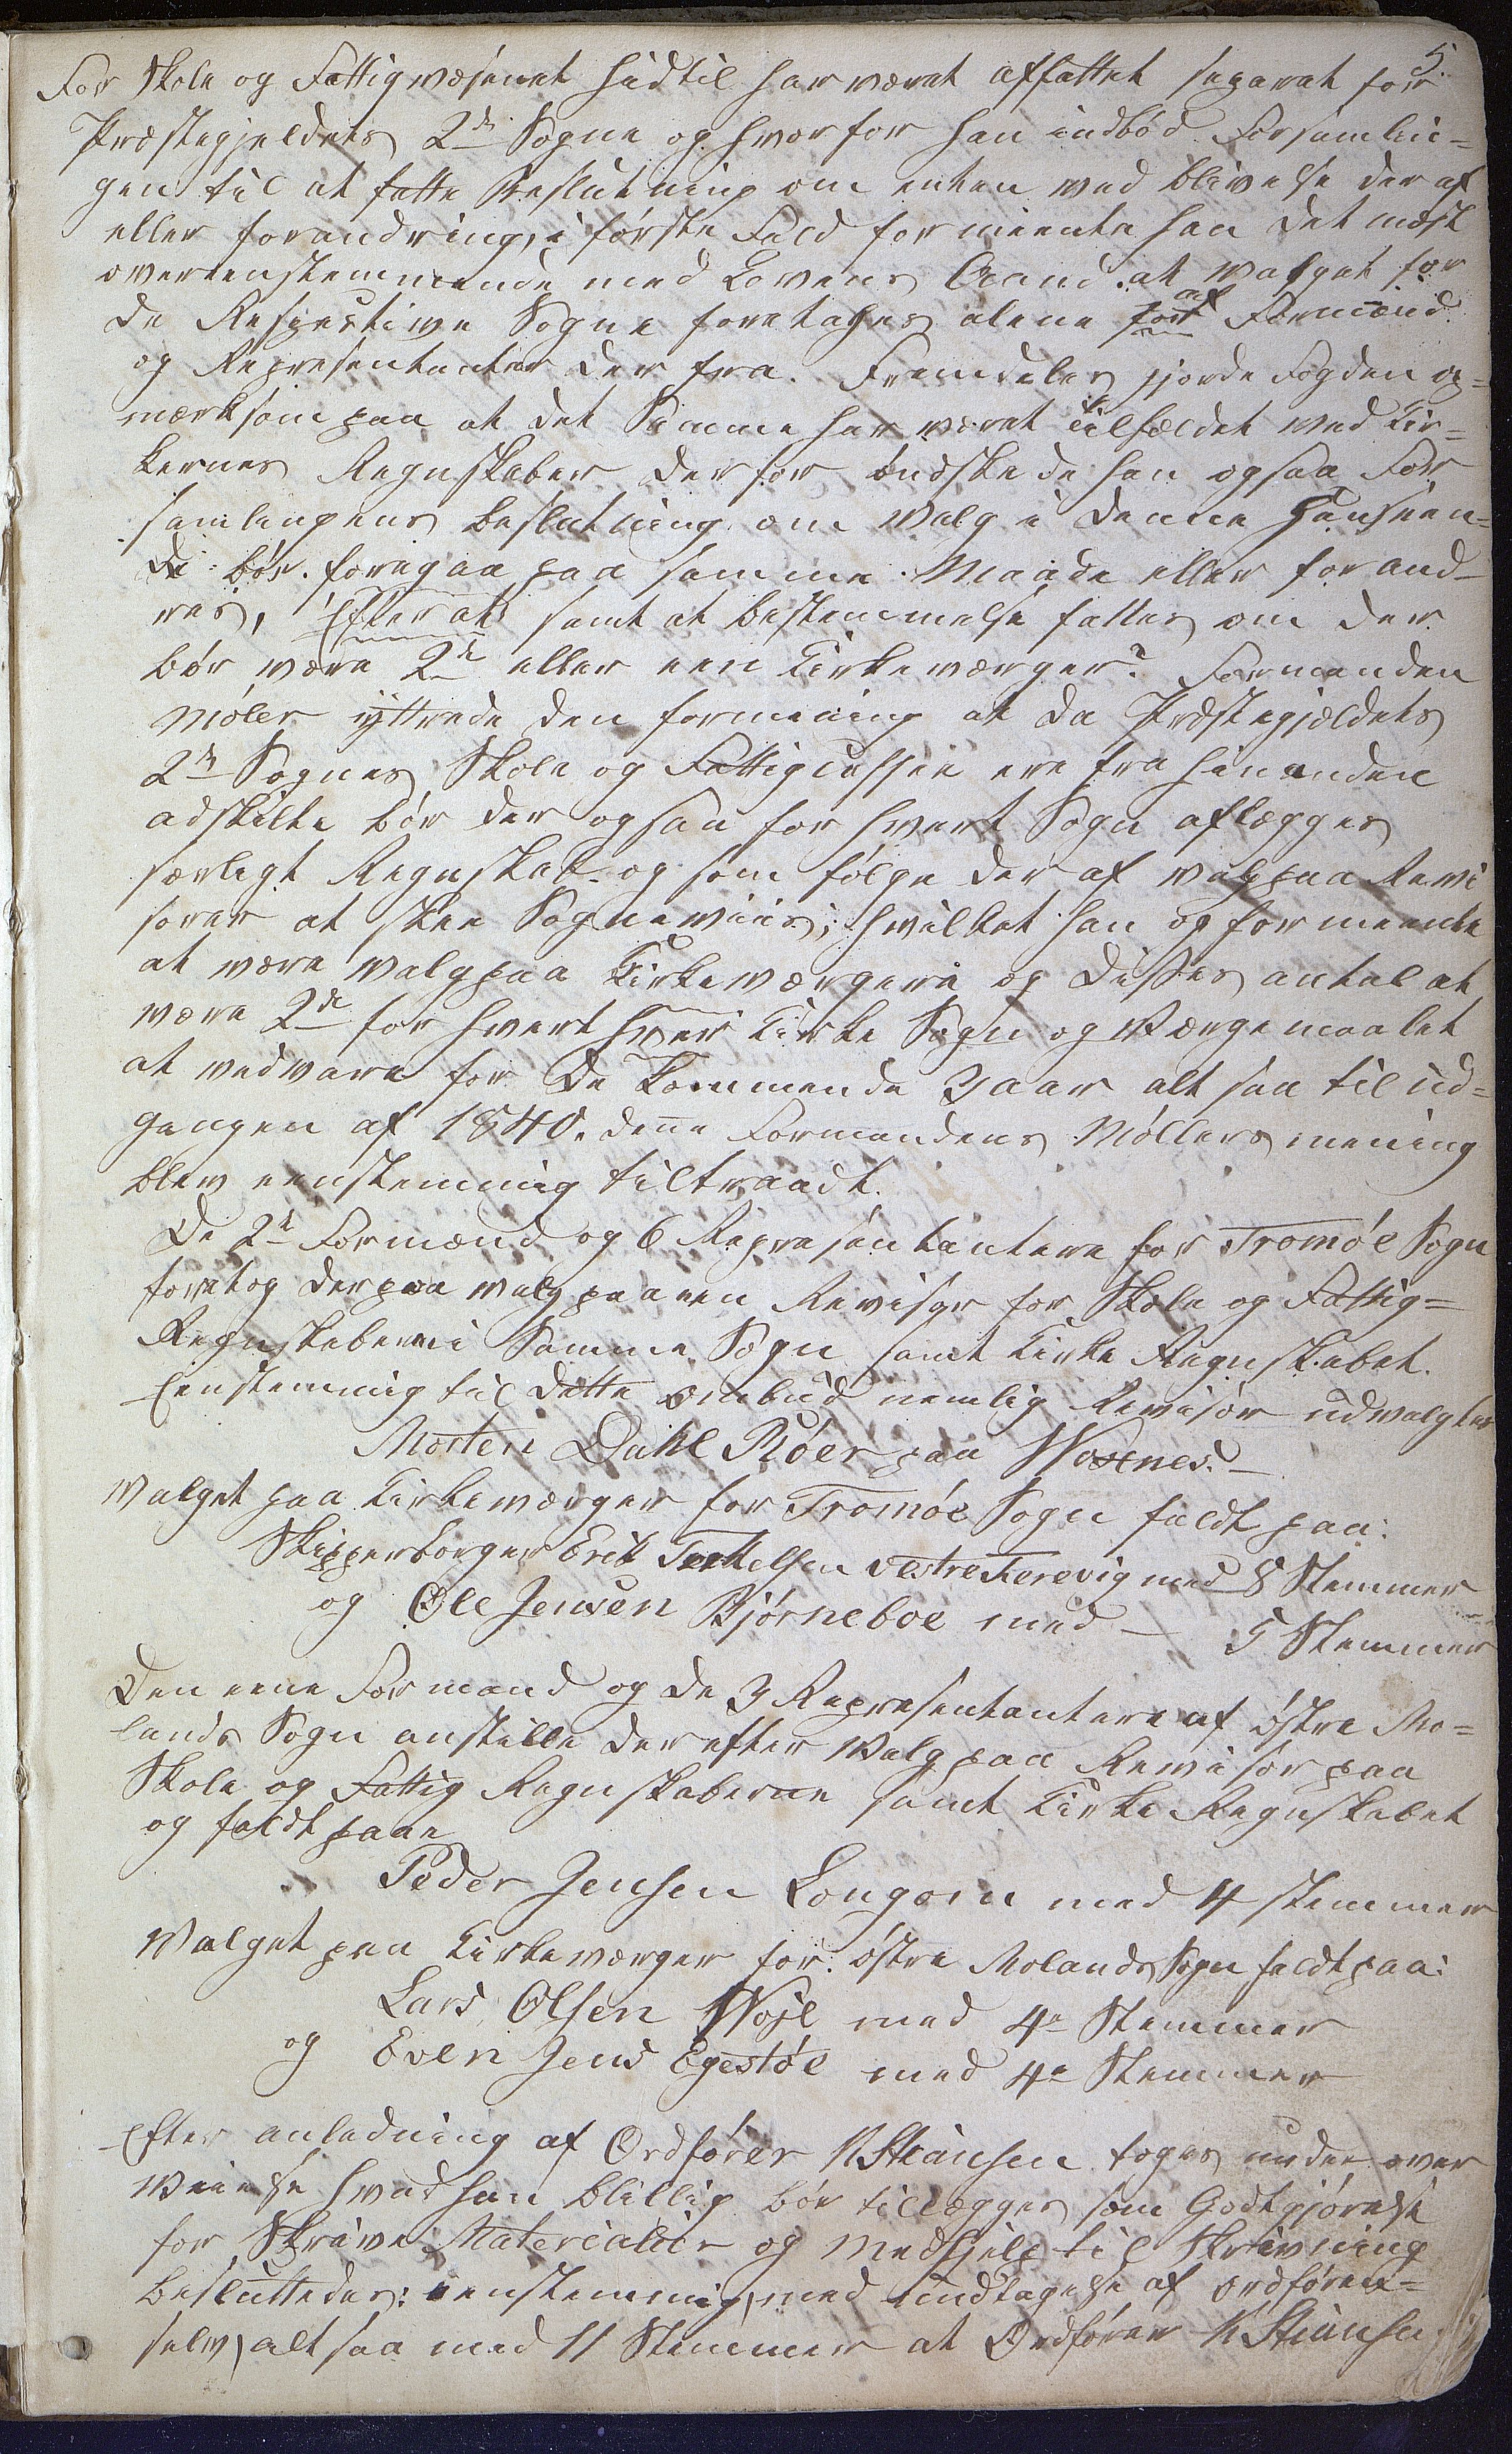 5.
For Skole og Fattigvæsenet hidtil har været affattet separat for
Præstegjeldets 2de Sogne og hvorfor han indbød Forsamlin-
gen til at fatte Beslutning om enten ved blivelse deraf
eller forandring, i første Fald formeente han det mest
overeenstemmende med Lovens Aand at valget for
de Respective Sogne foretages alene for af Formænd
og Representanter der fra. Fremdeles gjorde Fogden op-
mærksom paa at det Samme har været Tilfældet med Kir-
kernes Regnskaber derfor øndskede han ogsaa For
samlingens beslutning om Valg i denne Hanseen-
de bør foregaa paa samme Maade eller forand-
res, Efter at samt at bestemmelse fattes om der
bør være 2de eller een Kirkeværger? Formanden
Møler yttrede den formening at da Præstegjældets
2de Sognes Skole og Fattigcasser ere fra hinanden
adskilte bør der ogsaa for hvert Sogn aflægges
særligt Regnskab og som følge der af valg paa Revi
sorer at skee Sogneviis; hvilket han og formeente
at være valg paa Kirkeværgere og disses antal at
være 2de for hvert hver Kirke Sogn og Værgemaalet
at vedvare for de kommende 3 aar alt saa til ud-
gangen af 1840. denne Formandens Møllers mening
blev eenstemmig tiltraadt.
De 2de Formænd og 6 Repræsentantere for Tromøe Sogn
foretog derpaa valg paa een Revisor for Skole og Fattig-
Regnskaberne i Samme Sogn samt Kirke Regnskabet.
Eenstemmig til dette ombud nemlig Revisor udvalgtes
Morten Dahl Röer paa Woxnes.
Valget paa Kirkeværger for Tromøe Sogn faldt paa:
Skipperborger Erik Terkelsen Vestre Terevig med 8 Stemmer
og Ole Jensen Bjørneboe med – 5 Stemmer
Den eene Formand og de 3 Representantere af østre Mo-
lands Sogn anstille derefter Valg paa Revisor paa
Skole og Fattig Regnskaberne samt Kirke Regnskabet
og faldt paa
Peder Jensen Longom med 4 stemmer
Valget paa Kirkeværger for østre Molands Sogn faldt paa:
Lars Olsen Woje med 4e Stemmer
og Even Jens Egestøe med 4e Stemmer
Efter anledning af Ordfører K Stiansen toges under over
veielse hvad han billig bør tillægges som Godtgjørelse
for Skrive Materialier og medhjelp til Skrivning
besluttedes: eenstemmig, med undtagelse af ordføren-
selv, altsaa med 11 Stemmer at Ordfører K Stiansen